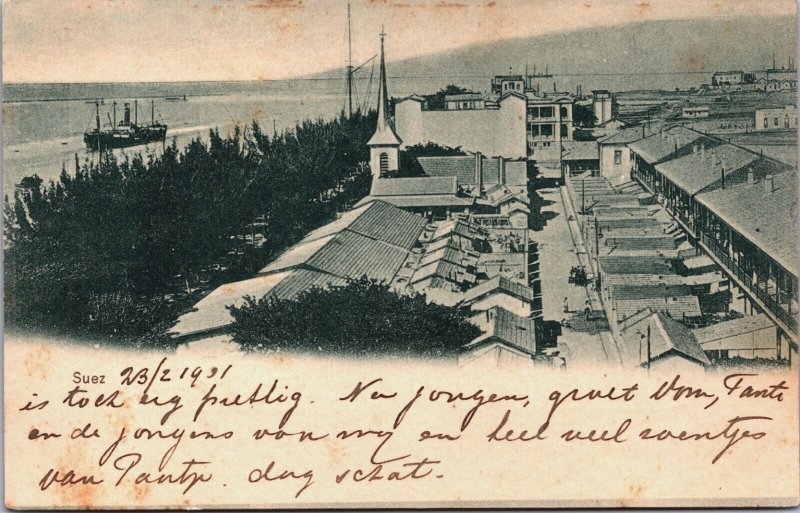 Suez 23/2 1901
is toch erg prettig. Nu jongen, groet Oom, Tante
en de jongens van mij en heel veel zoentjes
van Pantje. dag schat.